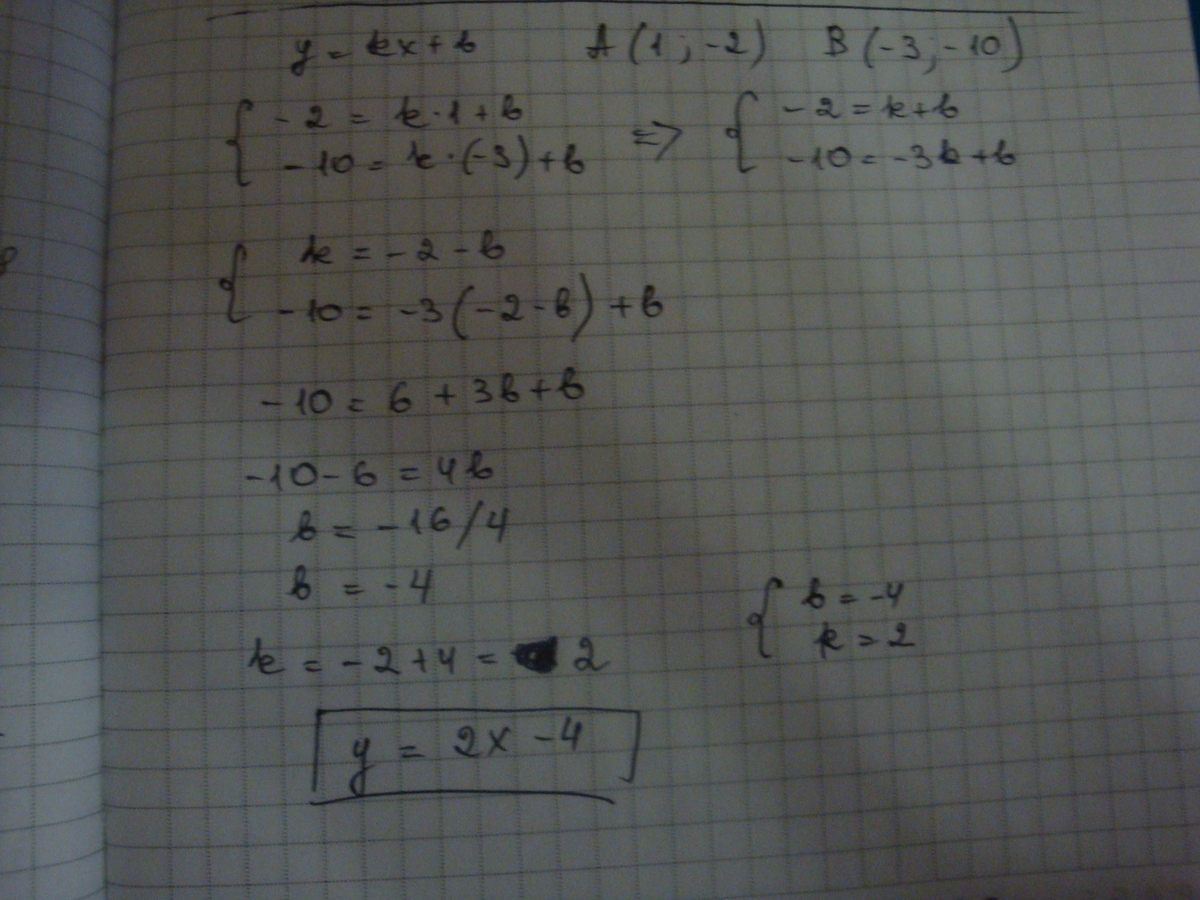 y = kx + b A (1; -2) B (-3; -10)
{ -2 = k·1 + b => { -2 = k + b
-10 = k·(-3) + b -10 = -3k + b
{ k = -2 - b
-10 = -3(-2 - b) + b
-10 = 6 + 3b + b
-10 - 6 = 4b
b = -16/4
b = -4 { b = -4
k = -2 + 4 = 2 k = 2
y = 2x - 4